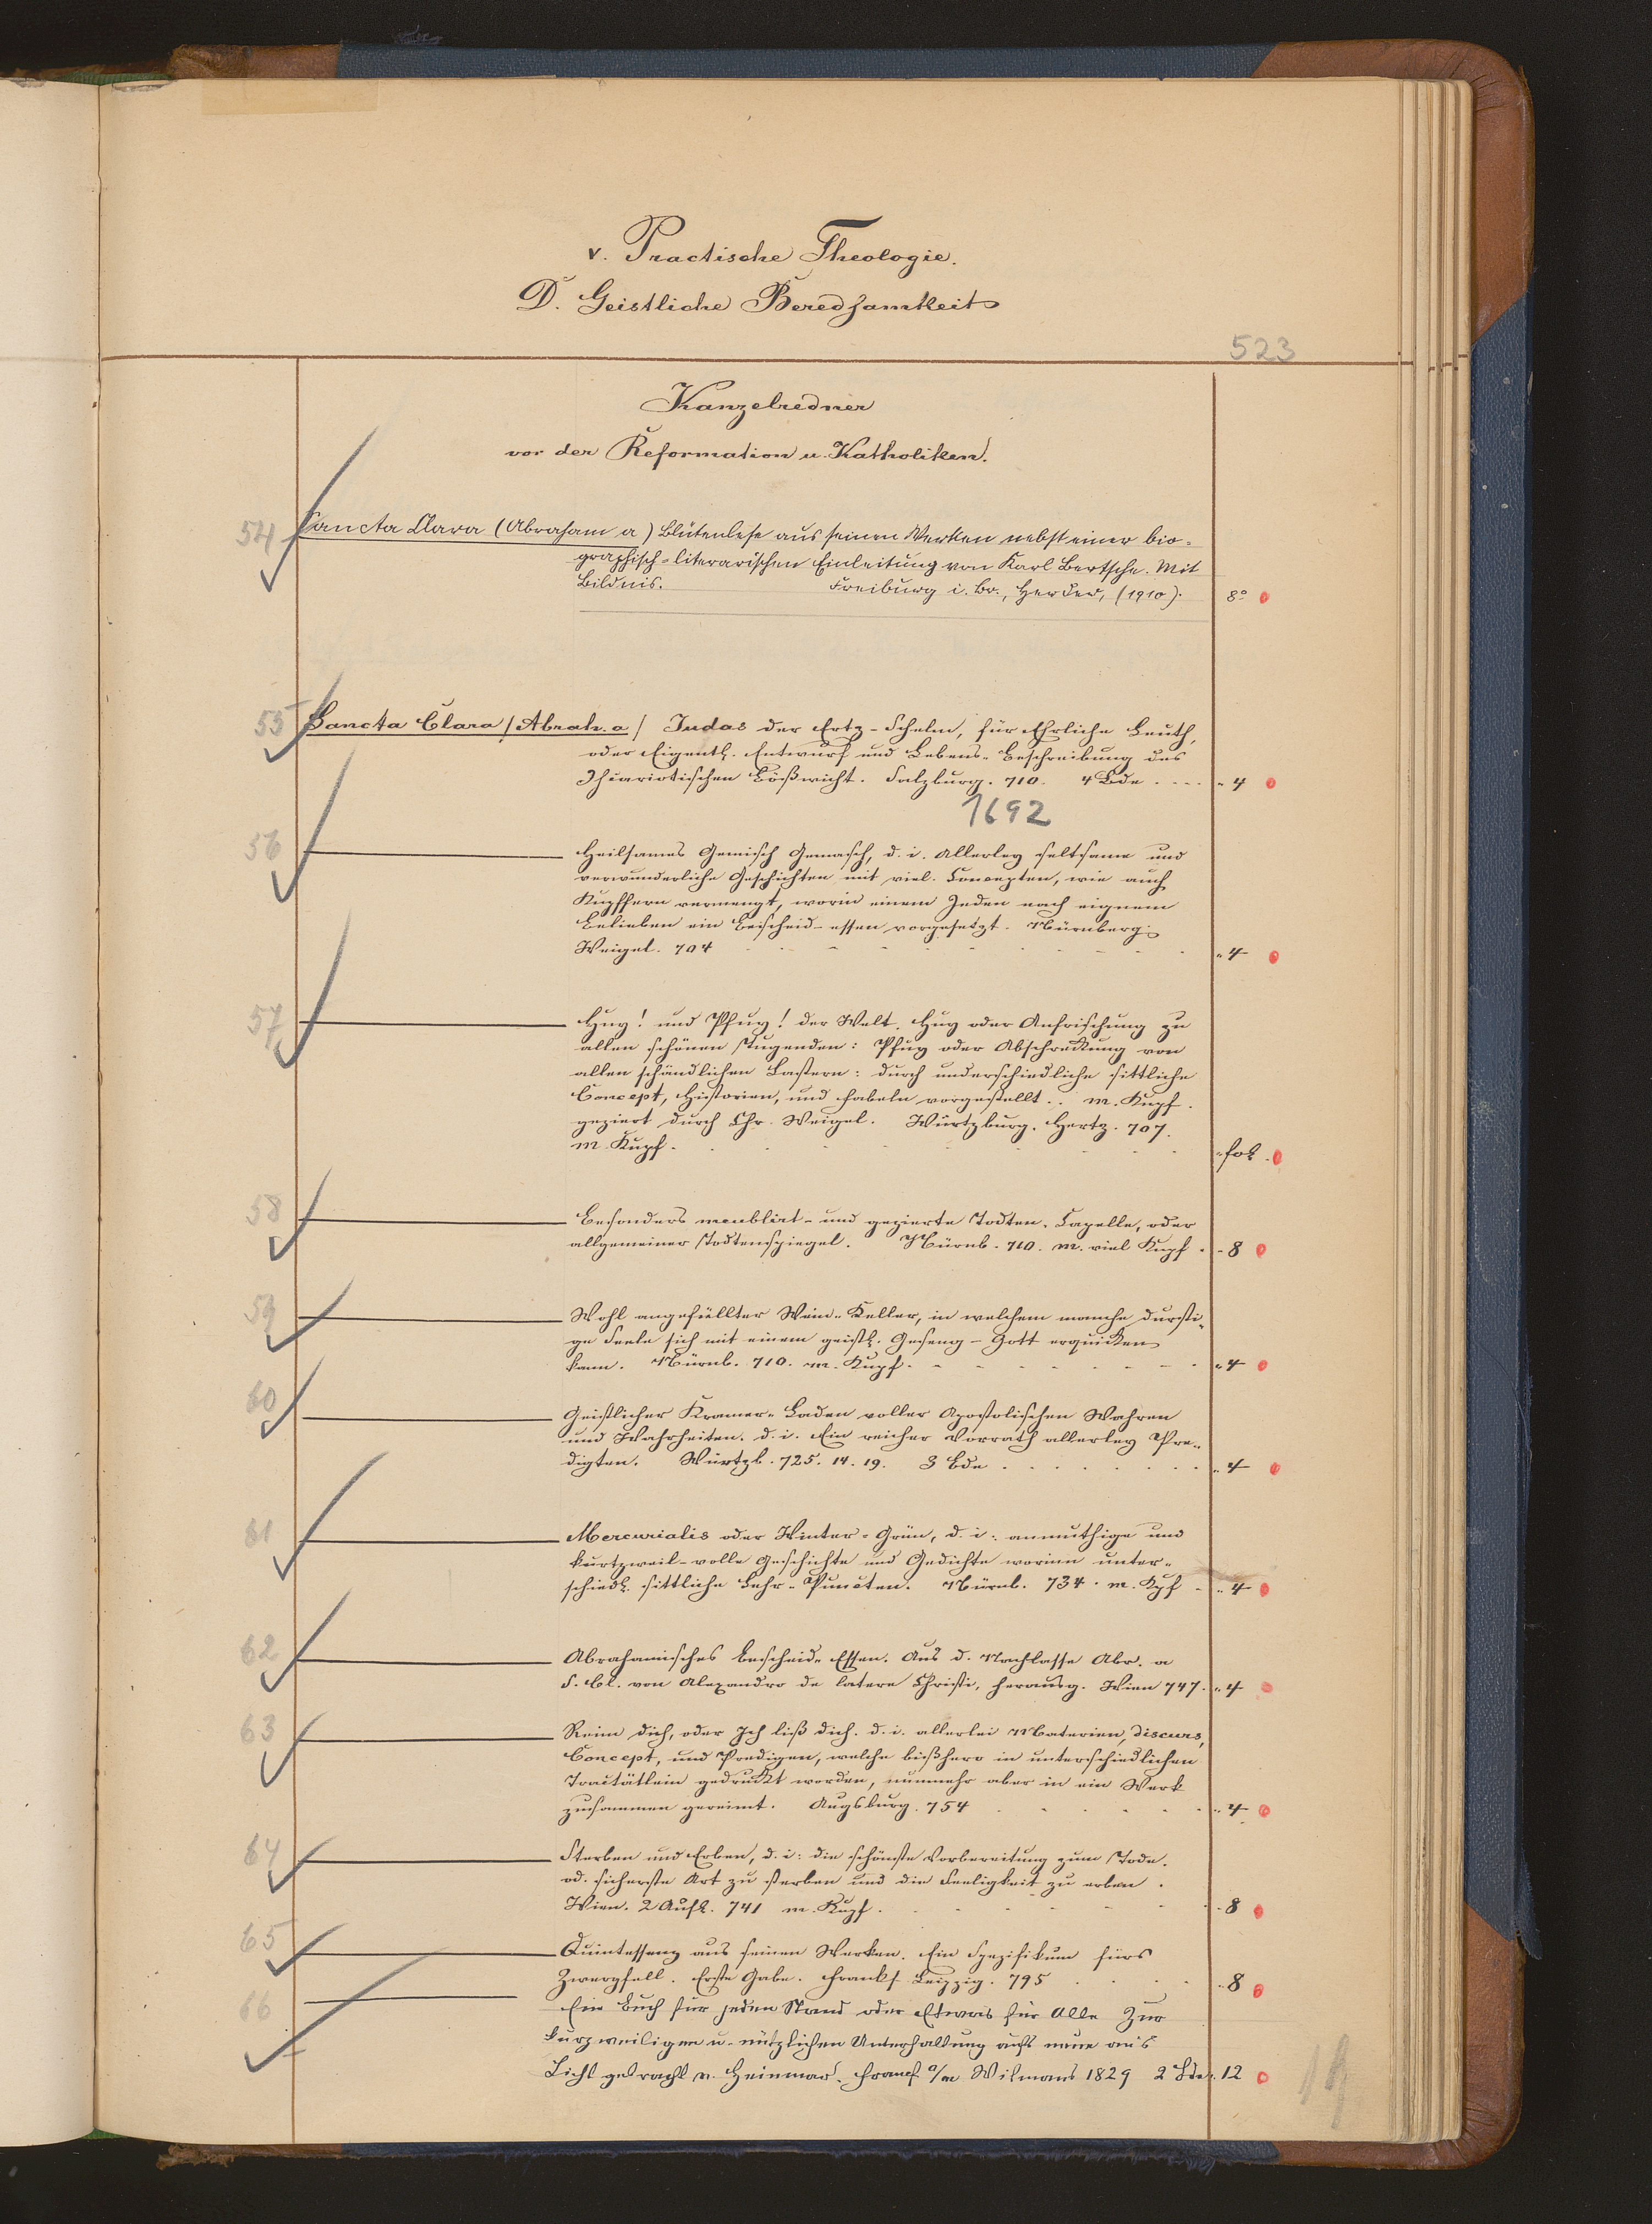 v. Practische Theologie.
D. Geistliche Beredsamkeit
523
Kanzelredner
vor der Reformation u. Katholiken.
54 Sancta Clara (Abraham a) Blütenlese aus seinen Werken nebst einer bio-
graphisch-literarischen Einleitung von Karl Bertsche. Mit
Bildnis. Freiburg i. Br., Herder, (1910). 8°
55 Sancta Clara / Abrah. a / Judas der Ertz-Schelm, für Ehrliche Leuth,
oder Eigentl. Entwurf und Lebens-Beschreibung des
Iscariotischen Bößwicht. Salzburg. 710. 4 Bde .... " 4
1692
56 Heilsames Gemisch Gemasch, d. i. Allerley seltsame und
verwunderliche Geschichten mit viel. Concepten, wie auch
Kupffern vermengt, worin einem Jeden nach eignem
Belieben ein Beischeid-essen vorgesetzt. Nürnberg.
Weigel. 704 " 4
57 Huy! und Pfuy! der Welt. Huy oder Anfrischung zu
allen schönen Tugenden: Pfuy oder Abschreckung von
allen schändlichen Lastern: durch underschiedliche sittliche
Concept, Historien, und Fabeln vorgestellt.. m. Kupf.
geziert durch Chr. Weigel. Würtzburg. Hertz. 707.
m. Kupf. " fol.
58 Besonders meublirt- und gezierte Todten-Capelle, oder
allgemeiner Todtenspiegel. Nürnb. 710. m. viel Kupf. - 8
59 Wohl angefüllter Wein-Keller, in welchem manche dursti-
ge Seele sich mit einem geistl. Geseng-Gott erquicken
kann. Nürnb. 710. m. Kupf. " 4
60 Geistlicher Kramer-Laden voller Apostolischen Wahren
und Wahrheiten. d. i. Ein reicher Vorrath allerley Pre-
digten. Würtzb. 725. 14. 19. 3 Bde " 4
61 Mercurialis oder Winter-Grün, d. i. anmuthige und
kurtzweil-volle Geschichte und Gedichte worinn unter-
schiedl. sittliche Lehr-Puncten. Nürnb. 734. m. Kpf " 4
62 Abrahamisches Bescheid-Essen. Aus d. Nachlasse Abr. a
S. Cl. von Alexandro de latere Christi, herausg. Wien 747. " 4
63 Reim dich, oder Ich liß dich. d. i. allerlei Materien, Discurs,
Concept, und Predigen, welche bißhero in unterschiedlichen
Tractätlein gedruckt worden, nunmehr aber in ein Werk
zusammen gereimt. Augsburg. 754 " 4
64 Sterben und Erben, d. i: die schönste Vorbereitung zum Tode.
od. sicherste Art zu sterben und die Seeligkeit zu erben.
Wien. 2 Aufl. 741 m. Kupf. - 8
65 Quintessenz aus seinen Werken. Ein Spezifikum fürs
Zwergfell. Erste Gabe. Frankf. Leipzig. 795 - 8
66 Ein Buch für jeden Stand oder Etwas für Alle Zur
kurzweiligen u. nützlichen Unterhaltung aufs neue ans
Licht gebracht v. Heinmar. Francf. a/m Wilmans 1829 2 Bde. 12